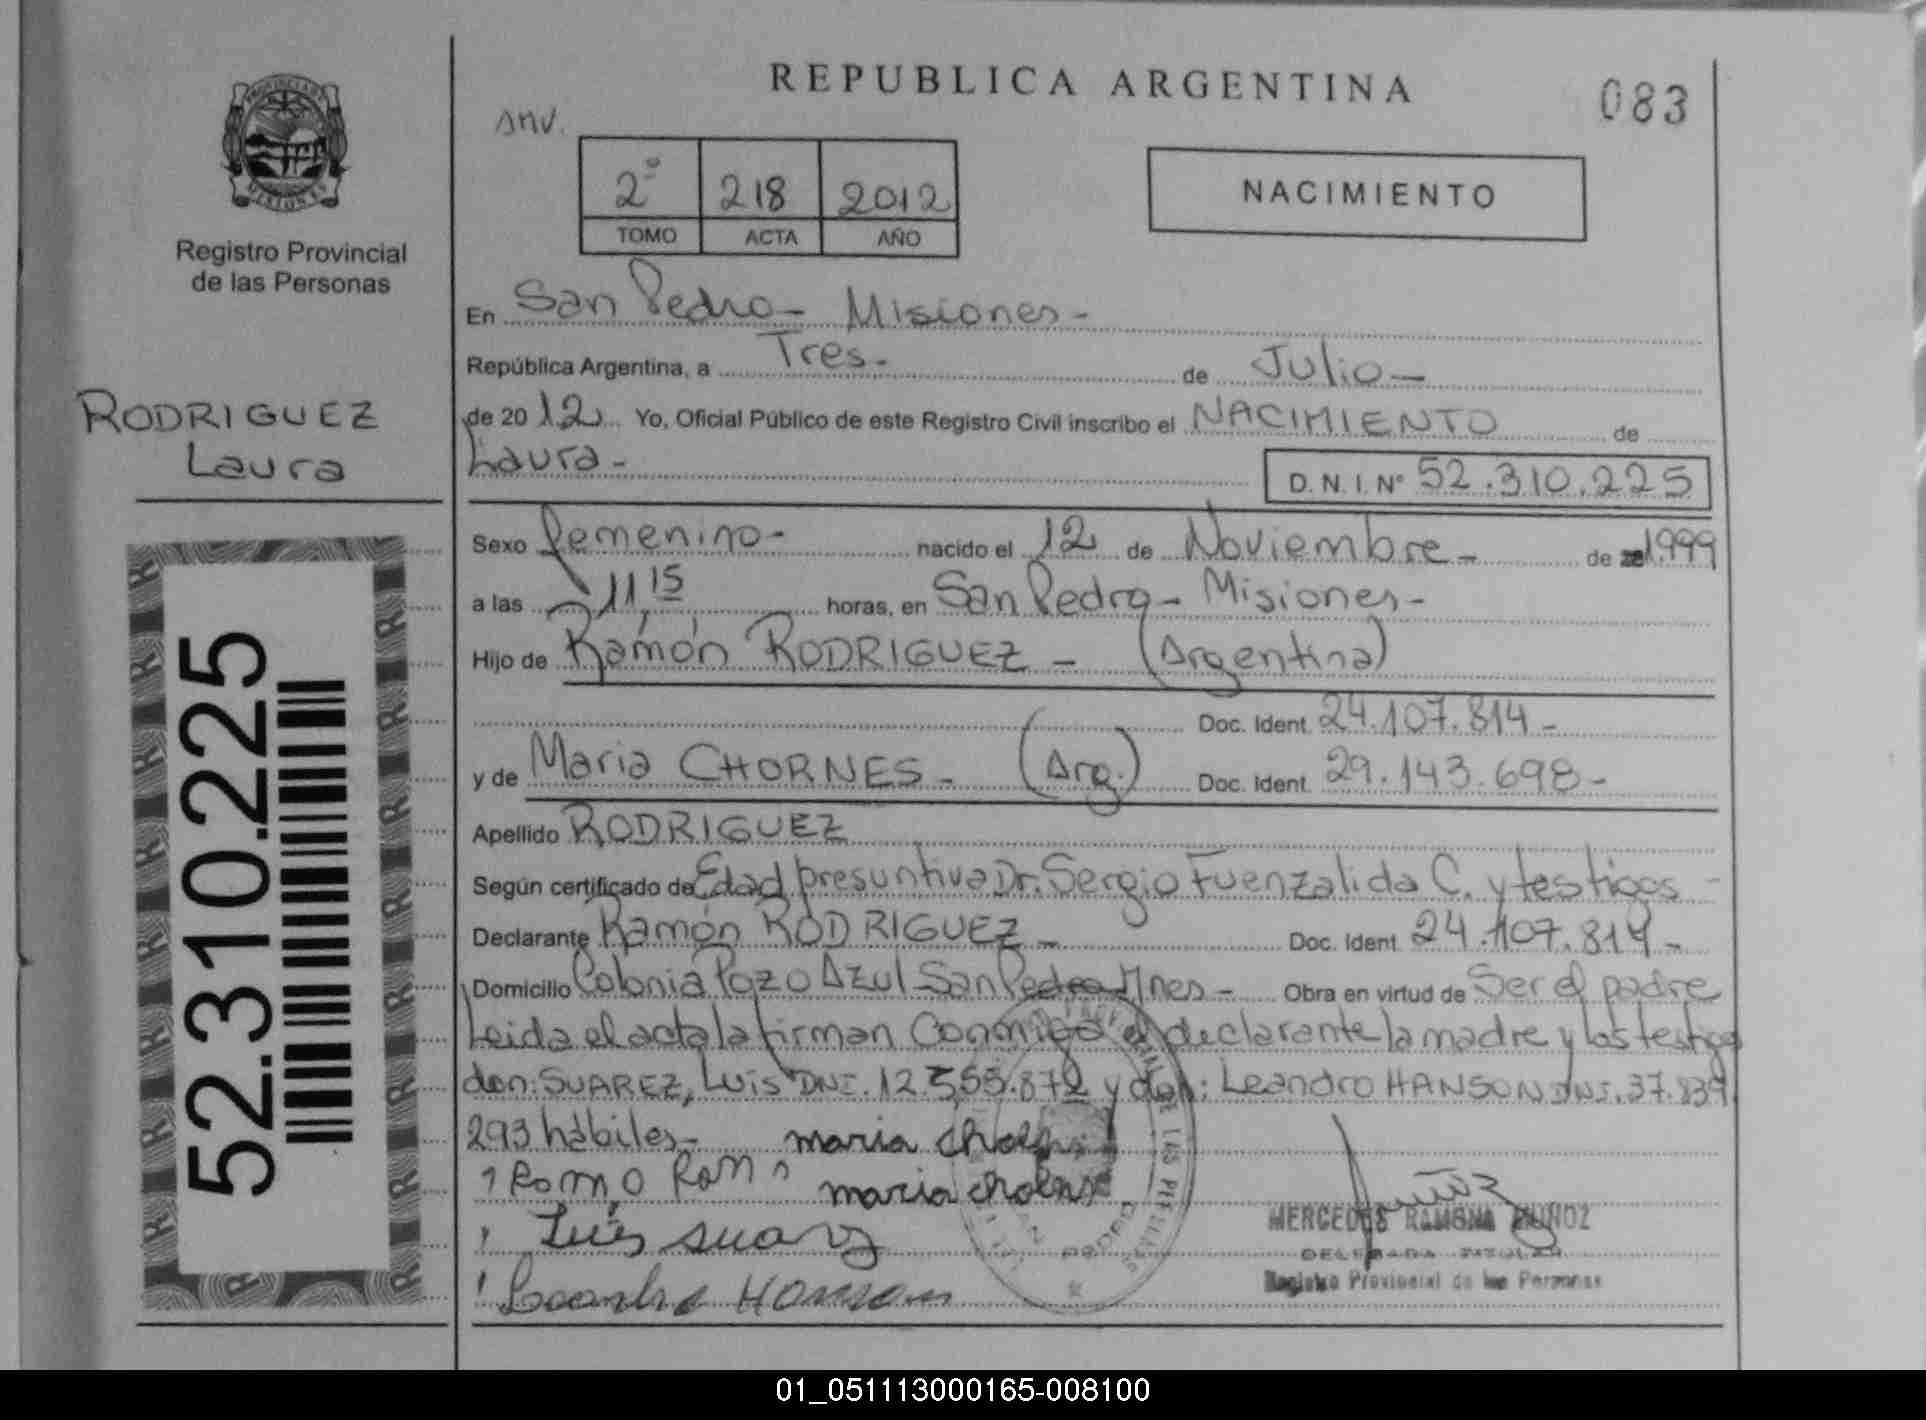 REPUBLICA ARGENTINA
083
PROVINCIA DE MISIONES
Registro Provincial
de las Personas
RODRIGUEZ
Laura
52.310.225
ANV.
2º 218 2012
TOMO ACTA AÑO
NACIMIENTO
En San Pedro - Misiones -
República Argentina, a Tres - de Julio -
de 2012 Yo, Oficial Público de este Registro Civil inscribo el NACIMIENTO de
Laura -
D.N.I. Nº 52.310.225
Sexo femenino - nacido el 12 de Noviembre - de 1999
a las 11,15 horas, en San Pedro - Misiones -
Hijo de Ramón RODRIGUEZ - (Argentina)
Doc. Ident. 24.107.814 -
y de Maria CHORNES - (Arg.) Doc. Ident. 29.143.698 -
Apellido RODRIGUEZ
Según certificado de Edad presuntiva Dr. Sergio Fuenzalida C. y testigos -
Declarante Ramón RODRIGUEZ - Doc. Ident. 24.107.814 -
Domicilio Colonia Pozo Azul - San Pedro Mnes - Obra en virtud de Ser el padre
Leida el acta la firman Conmigo el declarante la madre y los testigos
don: SUAREZ, Luis DNI. 12.555.872 y don: Leandro HANSON DNI. 37.839.
293 hábiles -
maria
maria
Luis suarez
Leandro Hanson
MERCEDES RAMONA MUÑOZ
DELEGADA TITULAR
Registro Provincial de las Personas
01_051113000165-008100